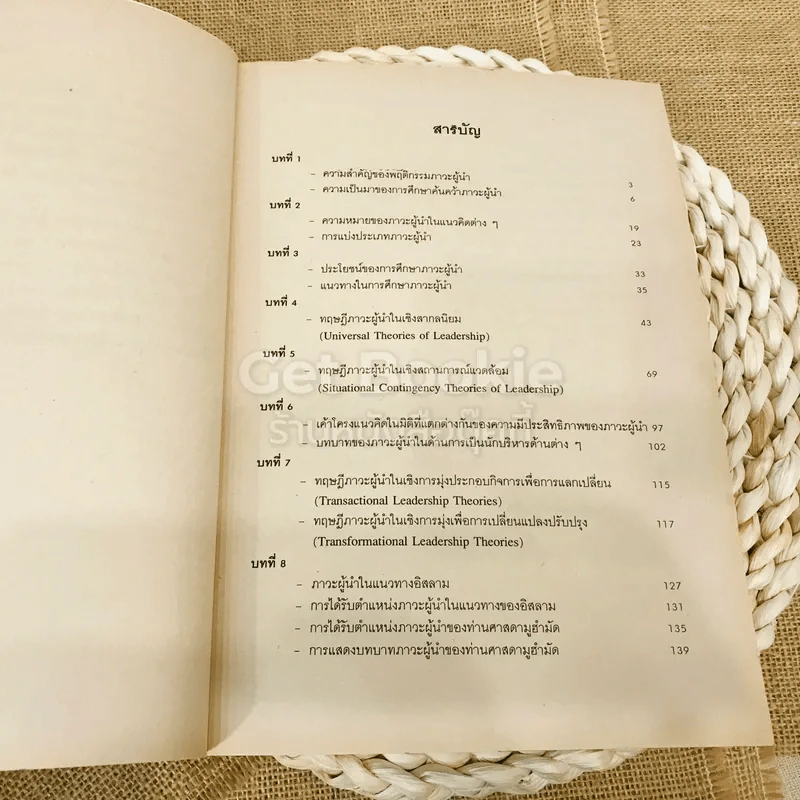 สารบัญ
บทที่ 1
- ความสำคัญของพฤติกรรมภาวะผู้นำ 3
- ความเป็นมาของการศึกษาค้นคว้าภาวะผู้นำ 6
บทที่ 2
- ความหมายของภาวะผู้นำในแนวคิดต่าง ๆ 19
- การแบ่งประเภทภาวะผู้นำ 23
บทที่ 3
- ประโยชน์ของการศึกษาภาวะผู้นำ 33
- แนวทางในการศึกษาภาวะผู้นำ 35
บทที่ 4
- ทฤษฎีภาวะผู้นำในเชิงสากลนิยม 43
(Universal Theories of Leadership)
บทที่ 5
- ทฤษฎีภาวะผู้นำในเชิงสถานการณ์แวดล้อม 69
Get Bookie
(Situational Contingency Theories of Leadership)
บทที่ 6
- เค้าโครงแนวคิดในมิติที่แตกต่างกันของความมีประสิทธิภาพของภาวะผู้นำ 97
- บทบาทของภาวะผู้นำในด้านการเป็นนักบริหารด้านต่าง ๆ 102
บทที่ 7
- ทฤษฎีภาวะผู้นำในเชิงการมุ่งประกอบกิจการเพื่อการแลกเปลี่ยน 115
(Transactional Leadership Theories)
- ทฤษฎีภาวะผู้นำในเชิงการมุ่งเพื่อการเปลี่ยนแปลงปรับปรุง 117
(Transformational Leadership Theories)
บทที่ 8
- ภาวะผู้นำในแนวทางอิสลาม 127
- การได้รับตำแหน่งภาวะผู้นำในแนวทางของอิสลาม 131
- การได้รับตำแหน่งภาวะผู้นำของท่านศาสดามูฮำมัด 135
- การแสดงบทบาทภาวะผู้นำของท่านศาสดามูฮำมัด 139